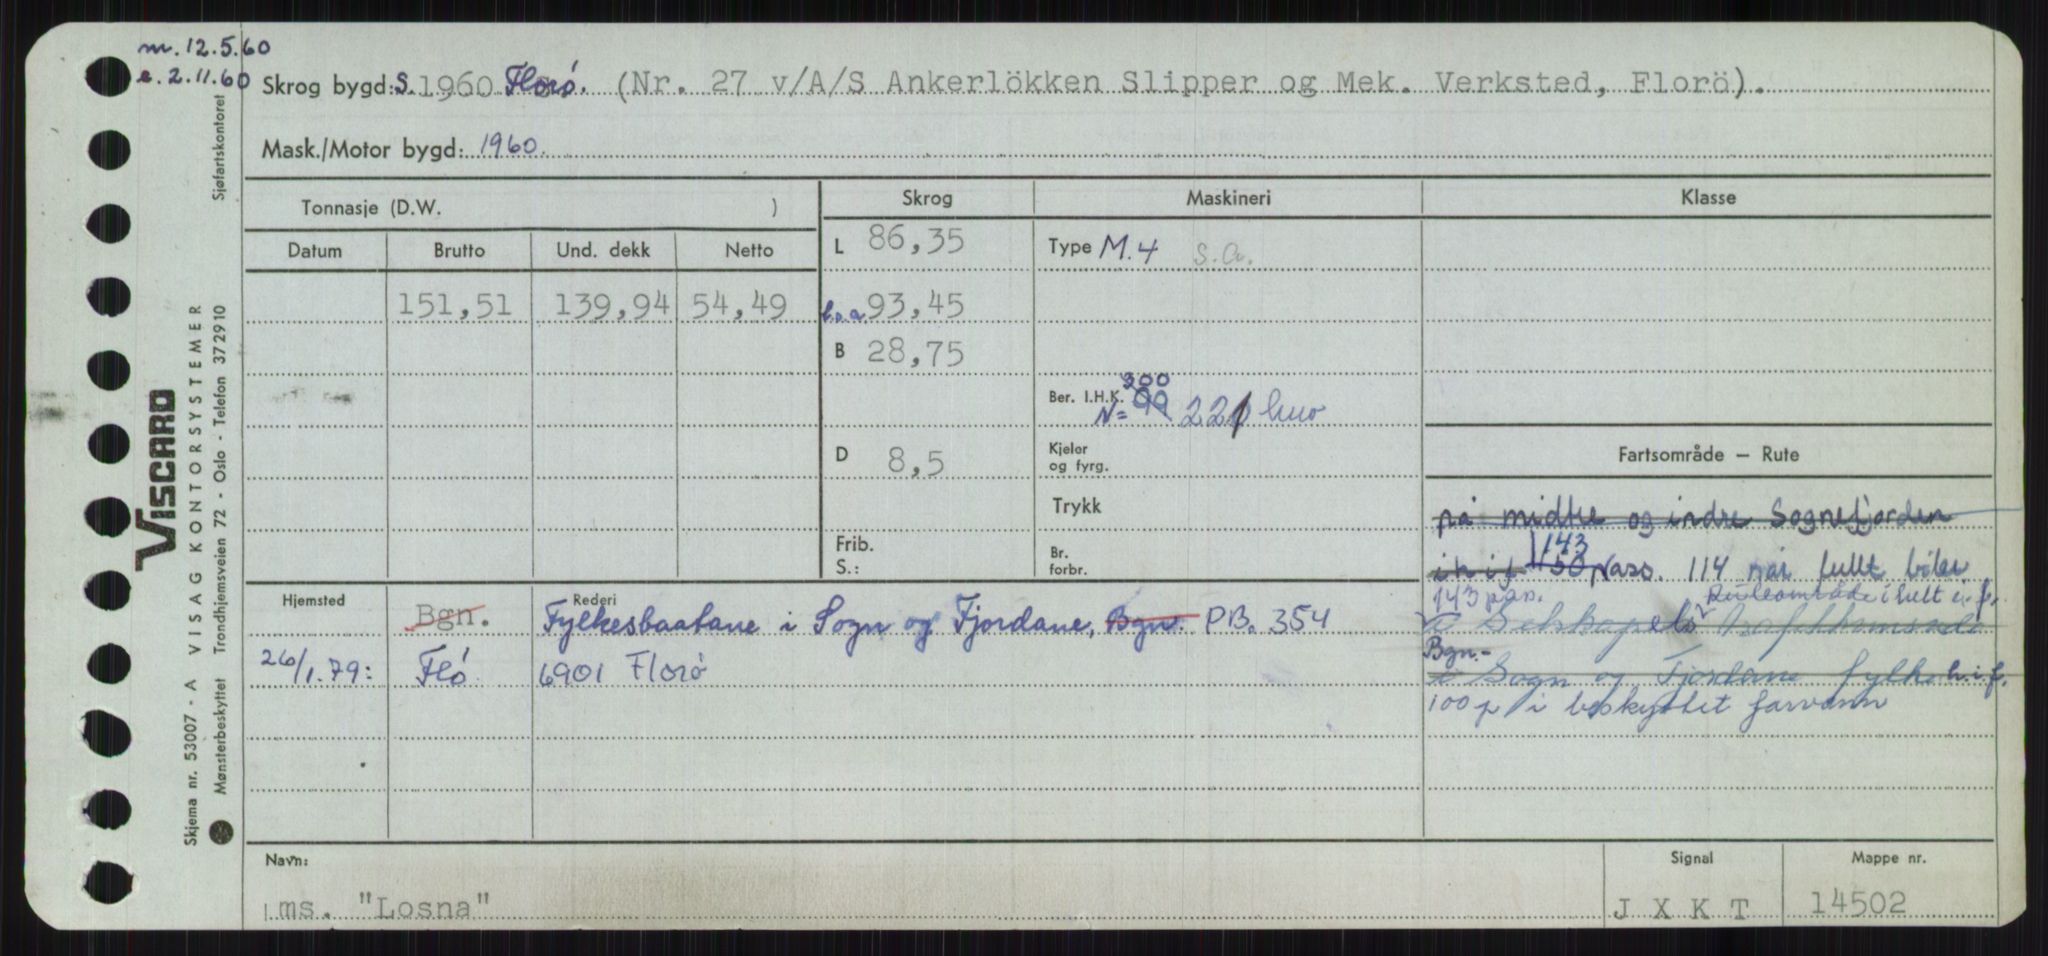 m. 12.5.60
e. 2.11.60
Skrog bygd: S. 1960 Florø. (Nr. 27 v/A/S Ankerlökken Slipper og Mek. Verksted, Florö).
Mask./Motor bygd: 1960.
Tonnasje (D.W. )
Skrog
Maskineri
Klasse
Datum
Brutto
Und. dekk
Netto
151,51
139,94
54,49
L 86,35
l.o.a 93,45
B 28,75
D 8,5
Frib.
S.:
Type M.4 S.A.
300
Ber. I.H.K. N= 99 221
Kjeler
og fyrg.
Trykk
Br.
forbr.
Fartsområde — Rute
på midtre og indre Sognefjorden
143
150 pass. 114 når fullt biler
143 pas.
Selskapets
Bgn.-
i Sogn og Fjordane fylke h.i.f.
100 p i beskyttet farvann
Hjemsted
Bgn.
Rederi
Fylkesbaatane i Sogn og Fjordane, Bgn. PB. 354
26/1.79: Flø 6901 Florø
Navn:
ms. "Losna"
Signal
J X K T
Mappe nr.
14502
VISCARD
Skjema nr. 53007 - A VISAG KONTORSYSTEMER
Mønsterbeskyttet Trondhjemsveien 72 - Oslo - Telefon 372910 Sjøfartskontoret